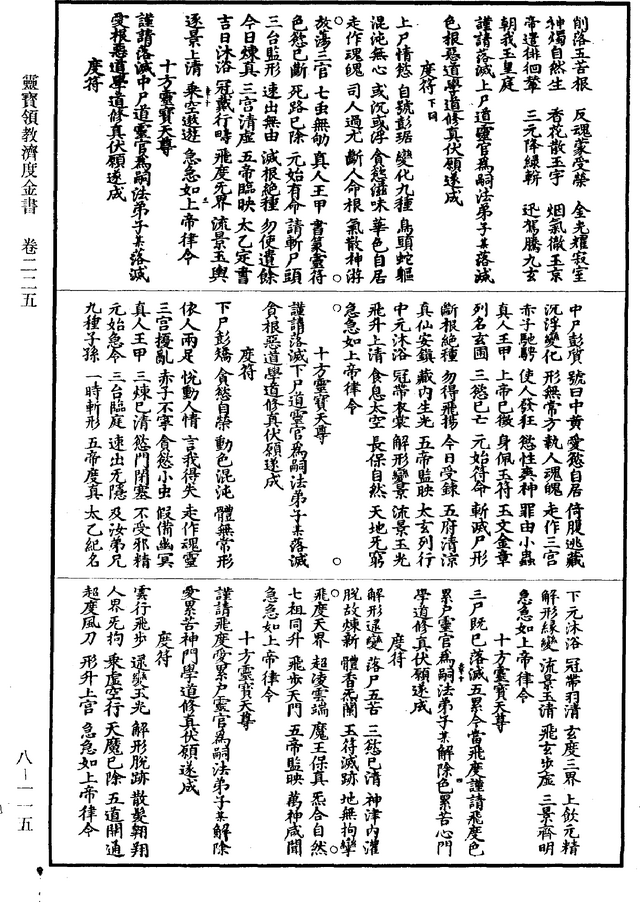 靈寶領教濟度金書　卷二二五
八—一一五
削落五苦根　反魂蒙受榮　金光耀寂室
神燭自然生　香花散玉宇　烟氣徹玉京
帝遣徘徊輦　三元降綠軿　迅駕騰九玄
朝我玉皇庭
謹請落滅上尸道靈官為嗣法弟子某落滅
色根惡道學道修真伏願遂成
度符下同
上尸情慾　自號彭琚　變化九種　烏頭蛇軀
混沌無心　或沉或浮　貪慾滋味　華色自居
走作魂魄　司人過尤　斷人命根　氣散神游
放蕩三官　七虫無劬　真人王甲　書篆靈符
色慾已斷　死路已除　元始有命　請斬尸頭
三台監形　速出無由　滅根絕種　勿使遺餘
今日煉真　三宮清虛　五帝臨映　太乙定書
吉日沐浴　冠戴行時　飛度死界　流景玉輿
逐景上清　乘空遨遊　急急如上帝律令
十方靈寶天尊
謹請落滅中尸道靈官為嗣法弟子某落滅
愛根惡道學道修真伏願遂成
度符
中尸彭質　號曰中黃　愛慾自居　倚腹逃藏
沉浮變化　形無常方　執人魂魄　走作三宮
赤子馳騁　使人發狂　慾性爽神　罪由小蟲
真人王甲　上帝已徵　身佩玉符　玉文金章
列名玄圃　三慾已亡　元始符命　斬滅尸形
斷根絕種　勿得飛揚　今日受鍊　五府清涼
真仙安鎮　藏內生光　五帝監映　太玄列行
中元沐浴　冠帶衣裳　解形變景　流景玉光
飛升上清　食息太空　長保自然　天地死窮
急急如上帝律令
十方靈寶天尊
謹請落滅下尸道靈官為嗣法弟子某落滅
貪根惡道學道修真伏願遂成
度符
下尸彭矯　貪慾自榮　動色混沌　體無常形
依人兩足　悅動人情　言我得失　走作魂靈
三宮擾亂　赤子不寧　貪慾小虫　假備幽冥
真人王甲　三煉已清　慾門閉塞　不受邪精
元始急令　三台臨庭　速出无隱　及汝弟兄
九種子孫　一時斬形　五帝度真　太乙紀名
下元沐浴　冠帶羽清　玄度三界　上飲元精
解形緣變　流景玉清　飛玄步虛　三景齊明
急急如上帝律令
十方靈寶天尊
三尸既已落滅五累今當飛度謹請飛度色
累尸靈官為嗣法弟子某解除色累苦心門
學道修真伏願遂成
度符
解形遝變　落尸五苦　三慾已清　神津內灌
脫故煉新　體香炁蘭　玉符滅跡　地無拘攣
飛度天界　超凌雲端　魔王保真　炁合自然
七祖同升　飛步天門　五帝監映　萬神咸聞
急急如上帝律令
十方靈寶天尊
謹請飛度愛累尸靈官為嗣法弟子某解除
愛累苦神門學道修真伏願遂成
度符
雲行飛步　遝變玄光　解形脫跡　散髮翱翔
人界死拘　乘虛空行　天魔已除　五道開通
超度風刀　形升上宮　急急如上帝律令